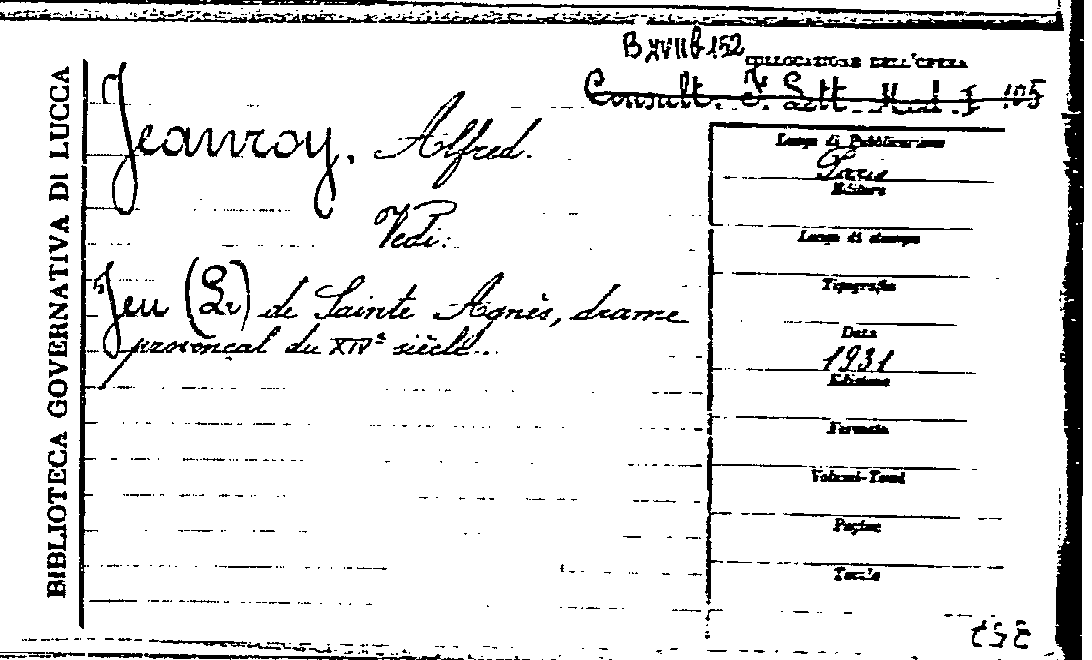 B XVII b 152
COLLOCAZIONE DELL'OPERA
Consult. I. Sett. Med. I 105
BIBLIOTECA GOVERNATIVA DI LUCCA
Jeanroy, Alfred.
Vedi:
Jeu (Le) de Sainte Agnès, drame
provençal du XIVe siècle..
Luogo di Pubblicazione
Paris
Editore
Luogo di stampa
Tipografia
Data
1931
Edizione
Formato
Volumi-Tomi
Pagine
Tavole